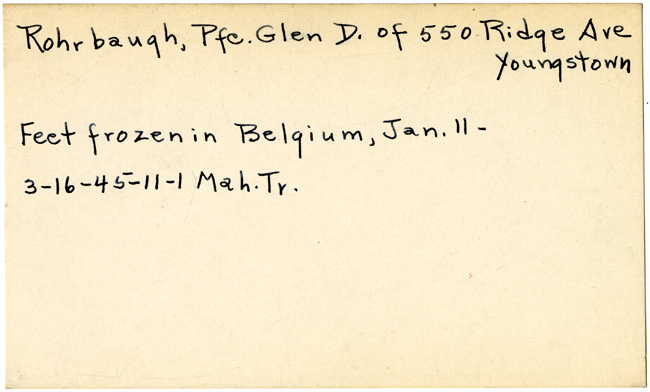 Rohrbaugh, Pfc. Glen D. of 550 Ridge Ave
Youngstown
Feet frozen in Belgium, Jan. 11 -
3-16-45-11-1 Mah. Tr.